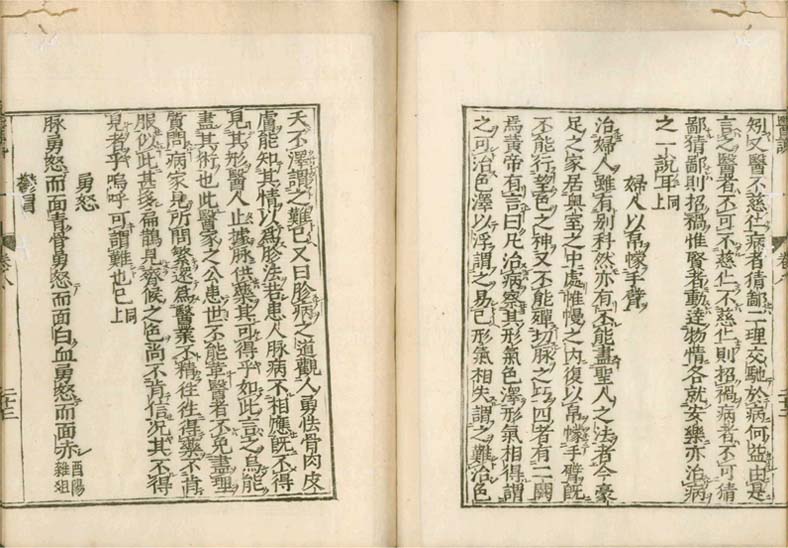 矧又醫不慈仁病者猜鄙二理交馳於病何益由是
言之醫者不可不慈仁不慈仁則招禍病者不可猜
鄙猜鄙則招禍惟賢者動達物情各就安樂亦治病
之一說耳同上
婦人以帛幪手臂
治婦人雖有別科然亦有不能盡聖人之法者今豪
足之家居奧室之中處帷慢之內復以帛幪手臂既
不能行望色之神又不能殫切脉之巧四者有二闕
焉黃帝有言曰凡治病察其形氣色澤形氣相得謂
之可治色澤以浮謂之易已形氣相失謂之難治色
卷八
二十三
夭不澤謂之難已又曰診病之道觀人勇怯骨肉皮
膚能知其情以爲診法若患人脉病不相應既不得
見其形醫人止據脉供藥其可得乎如此言之烏能
盡其術也此醫家之公患世不能革醫者不免盡理
質問病家見所問繁遝爲醫業不精往往得藥不肯
服似此甚多扁鵲見齊候之色尚不肯信况其不得
見者乎嗚呼可謂難也已同上
勇怒
脉勇怒而面青骨勇怒而面白血勇怒而面赤酉陽雜俎
卷八
二十三